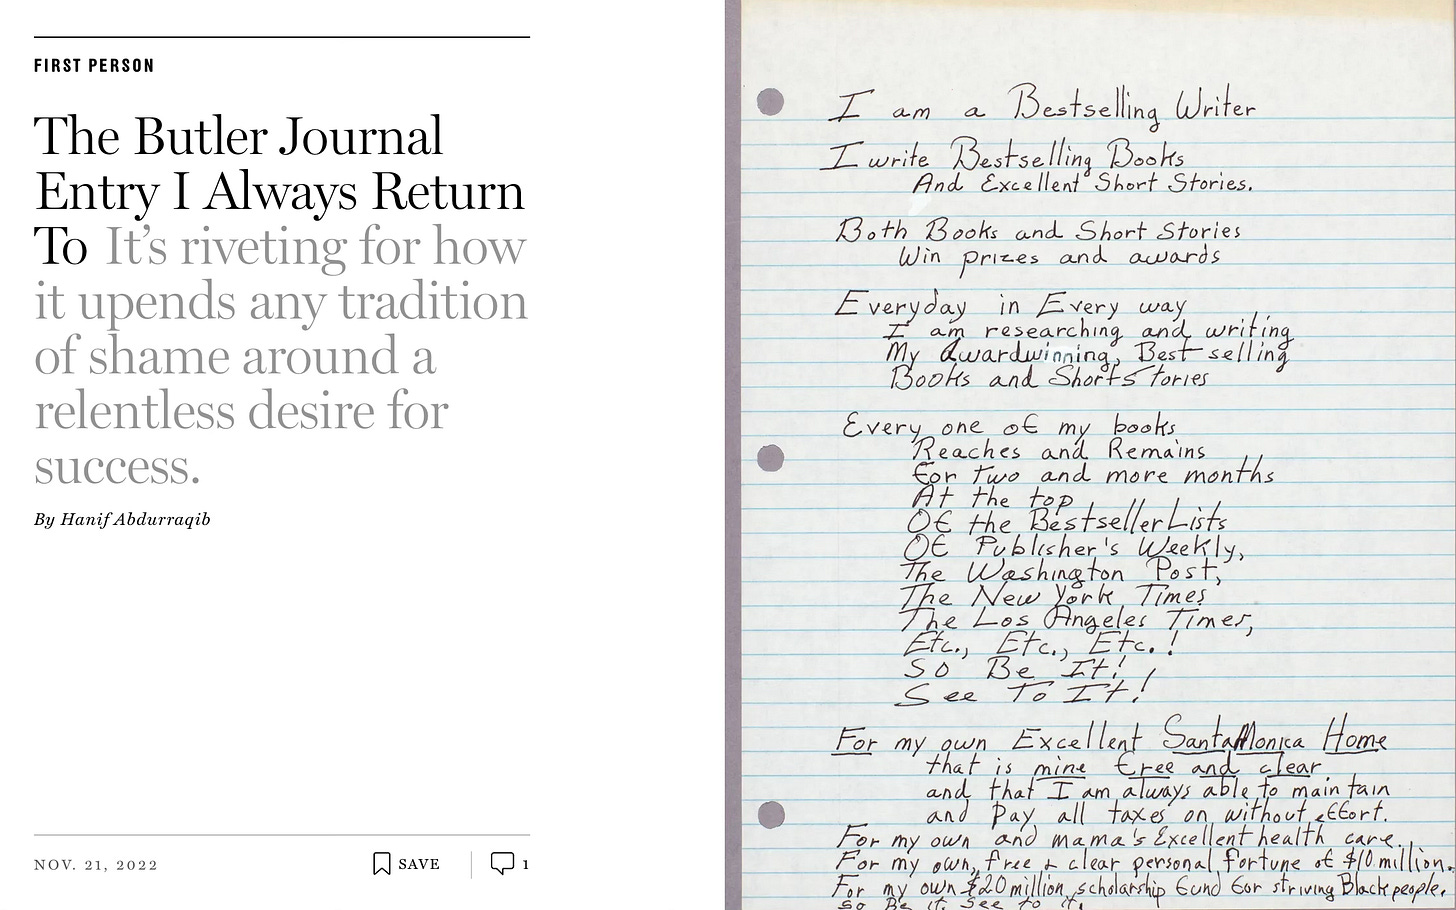 FIRST PERSON
The Butler Journal
Entry I Always Return
To It’s riveting for how
it upends any tradition
of shame around a
relentless desire for
success.
By Hanif Abdurraqib
NOV. 21, 2022
SAVE
1
I am a Bestselling Writer
I write Bestselling Books
And Excellent Short Stories.
Both Books and Short Stories
Win prizes and awards
Everyday in Every way
I am researching and writing
My Awardwinning, Best selling
Books and Short Stories
Every one of my books
Reaches and Remains
For Two and more months
At the top
Of the Bestseller Lists
Of Publisher's Weekly,
The Washington Post,
The New York Times
The Los Angeles Times,
Etc., Etc., Etc.!
So Be It!
See To It!
For my own Excellent Santa Monica Home
that is mine free and clear
and that I am always able to maintain
and Pay all taxes on without effort.
For my own and mama's Excellent health care.
For my own, free & clear personal fortune of $10 million.
For my own $20 million scholarship fund for striving Black people.
So Be it. See to it.